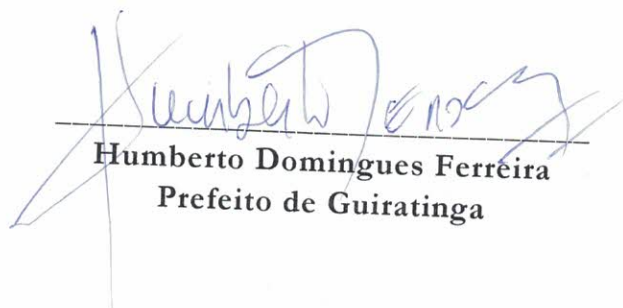 Humberto
Humberto Domingues Ferreira
Prefeito de Guiratinga